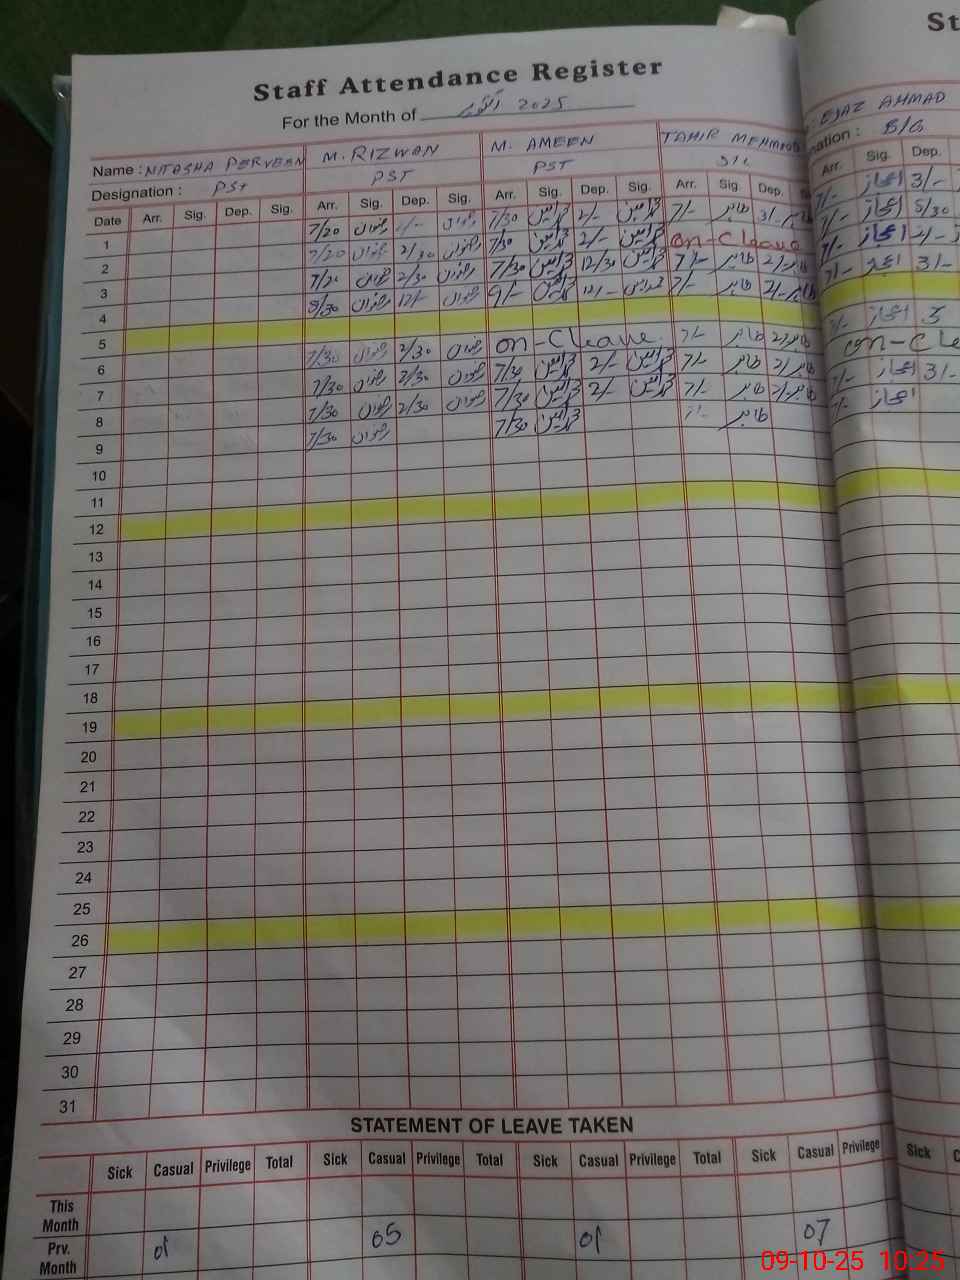 Staff Attendance Register
St
For the Month of اکتوبر 2025
Name : NITASHA PERVEEN M. RIZWAN M. AMEEN TAHIR MEHMOOD EJAZ AHMAD
Designation : PST PST PST S/G
Date Arr. Sig. Dep. Sig. Arr. Sig. Dep. Sig. Arr. Sig. Dep. Sig. Arr. Sig. Dep. Arr. Sig. Dep.
1 7/20 رضوان رضوان 7/30 محمد امین 2/- محمد امین 7/- طاہر 3/- اعجاز 3/-
2 7/20 رضوان 2/30 رضوان 7/30 محمد امین 2/- محمد امین on-Cleave اعجاز 5/30
3 7/20 رضوان 2/30 رضوان 7/30 محمد امین 12/30 محمد امین 7/- طاہر 2/- طاہر 7/- اعجاز 2/-
4 8/30 رضوان 12/- رضوان 9/- محمد امین 12/- محمد امین 7/- طاہر 2/- طاہر 7/- اعجاز 3/-
5
6 7/30 رضوان 2/30 رضوان on-Cleave 7/- طاہر 2/- طاہر 7/- اعجاز 3
7 7/30 رضوان 2/30 رضوان 7/30 محمد امین 2/- محمد امین 7/- طاہر 2/- طاہر on-Cle
8 7/30 رضوان 2/30 رضوان 7/30 محمد امین 2/- محمد امین 7/- طاہر 2/- طاہر 7/- اعجاز 3/-
9 7/30 رضوان 7/30 محمد امین 7/- طاہر 7/- اعجاز
10
11
12
13
14
15
16
17
18
19
20
21
22
23
24
25
26
27
28
29
30
31
STATEMENT OF LEAVE TAKEN
Sick Casual Privilege Total Sick Casual Privilege Total Sick Casual Privilege Total Sick Casual Privilege Sick C
This Month
Prv. Month 01 05 01 07
09-10-25 10:25